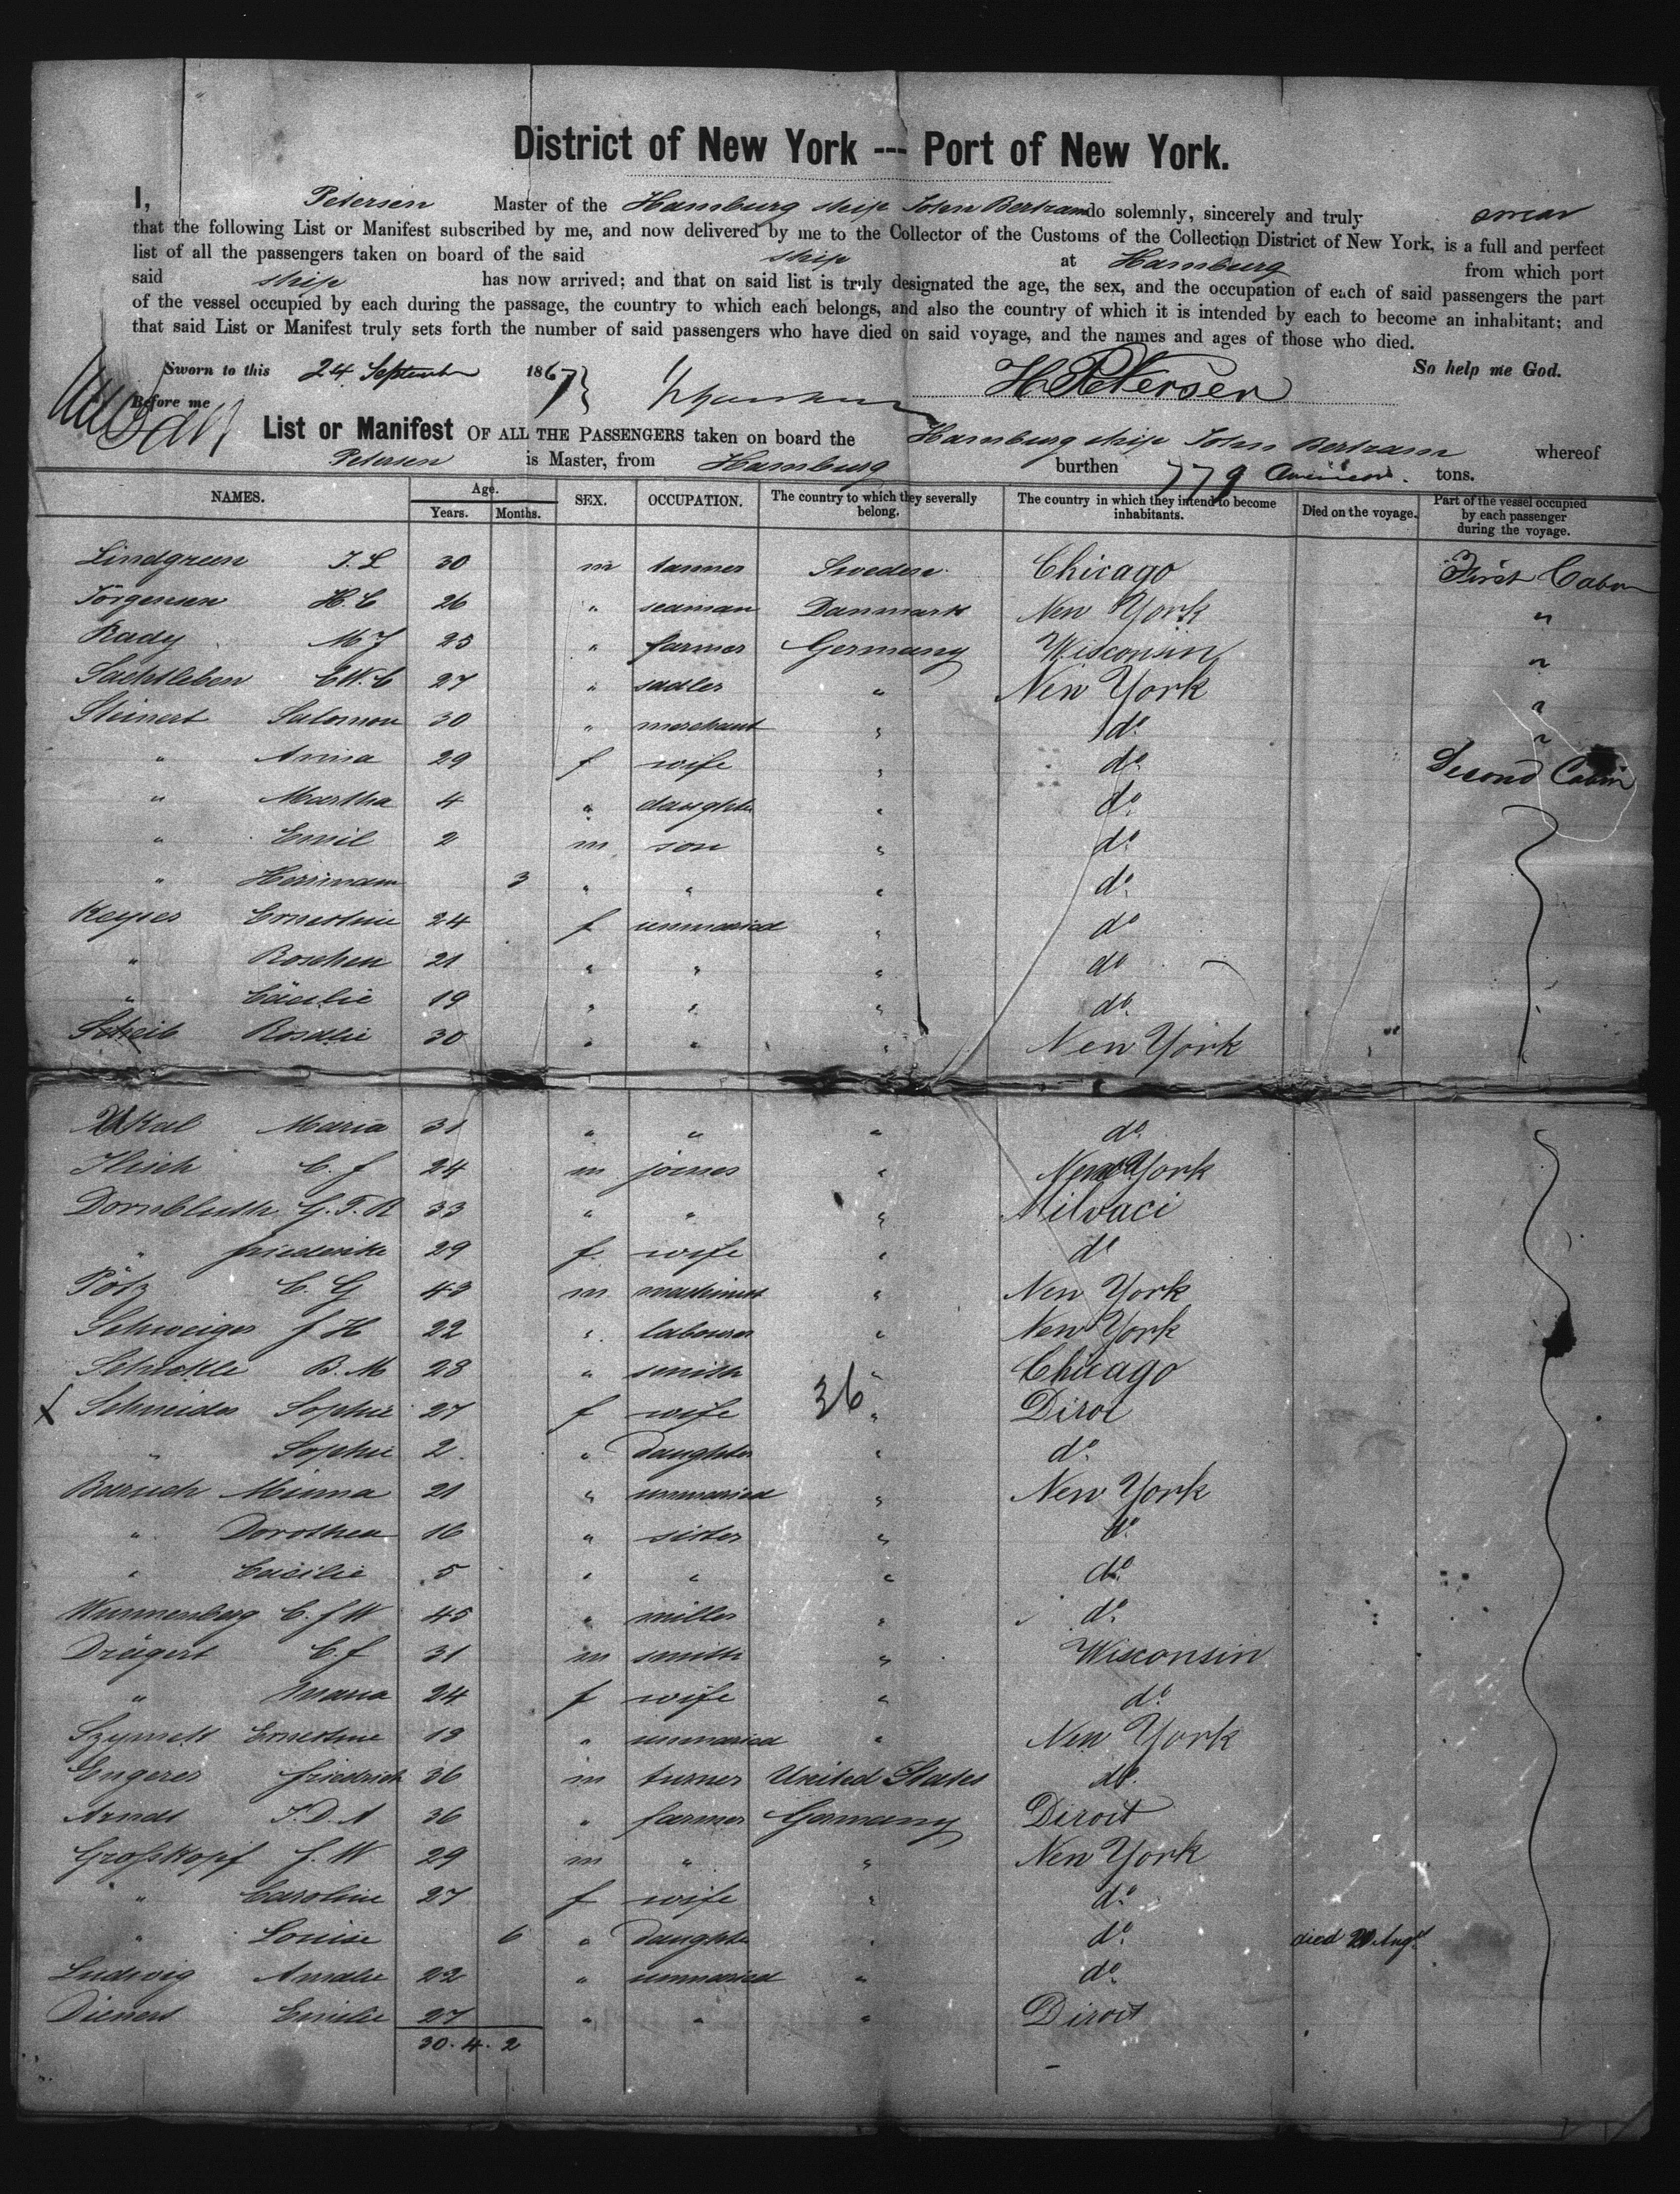 District of New York --- Port of New York.
I, Petersen Master of the Hamburg ship John Bertram do solemnly, sincerely and truly swear
that the following List or Manifest subscribed by me, and now delivered by me to the Collector of the Customs of the Collection District of New York, is a full and perfect
list of all the passengers taken on board of the said ship at Hamburg from which port
said ship has now arrived; and that on said list is truly designated the age, the sex, and the occupation of each of said passengers the part
of the vessel occupied by each during the passage, the country to which each belongs, and also the country of which it is intended by each to become an inhabitant; and
that said List or Manifest truly sets forth the number of said passengers who have died on said voyage, and the names and ages of those who died.
Sworn to this 24 September 1867 } H Petersen So help me God.
Before me
List or Manifest OF ALL THE PASSENGERS taken on board the Hamburg ship John Bertram whereof
Petersen is Master, from Hamburg burthen 779 tons.
NAMES. Age. Years. Months. SEX. OCCUPATION. The country to which they severally belong. The country in which they intend to become inhabitants. Died on the voyage. Part of the vessel occupied by each passenger during the voyage.
Lindgreen J. L 30 m tanner Sweden Chicago First Cabin
Jörgensen H. C 26 " seaman Danmark New York "
Rady M J 25 " farmer Germany Wisconsin "
Sachtleben C W. C 27 " sadler " New York "
Steinert Salomon 30 " merchant " do "
" Anna 29 f wife " do Second Cabin
" Martha 4 " daughter " do
" Emil 2 m son " do
" Herrmann 3 " " " do
Keyser Ernestine 24 f unmaried " do
" Roschen 21 " " " do
" Cäcilie 19 " " " do
Scheib Rosalie 30 " " " New York
Maria 31 " " " do
Ilisch C. f 24 m joiner " New York
Dornbluth G. F. R 33 " " " Milvaci
" friederike 29 f wife " do
Pötz C. G 43 m machinist " New York
Schweiger f H 22 " labourer " New York
Schickle B. M 28 " smith " Chicago
x Schneider Sophie 27 f wife 36 " Diroi
" Sophie 2 " daughter " do
Baruch Minna 21 " unmaried " New York
" Dorothea 16 " sister " do
" Cäcilie 5 " " " do
Wunnenberg C. f W 45 " miller " do
Drägert C. f 31 m smith " Wisconsin
" Maria 24 f wife " do
Ernestine 18 " unmaried " New York
Engerer friedrich 36 m turner United States do
Arndt J. D. A 36 " farmer Germany Diroit
Großkopf f. W 29 m " " New York
" Caroline 27 f wife " do
" Louise 6 " daughter " do died 20 Augt
Ludwig Amalie 22 " unmaried " do
Dienert Emilie 27 " " " Diroit
30. 4. 2